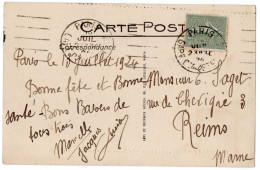 CARTE POST
Correspondance
PARIS
Paris le 12 Juillet 1924
Bonne fête et Bonne
santé - Bons Baisers de
tous trois
Marcelle
Jacques
Monsieur G. Saget
rue de 3
Reims
Marne